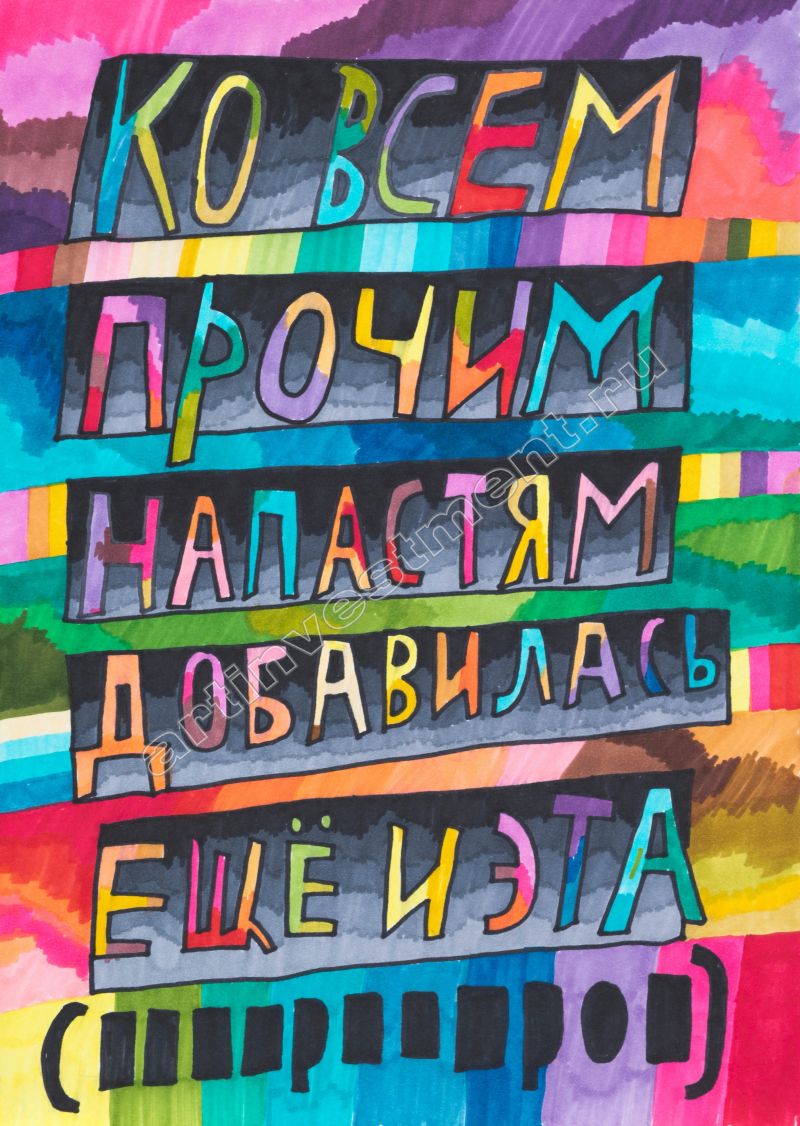 КО ВСЕМ
ПРОЧИМ
НАПАСТЯМ
ДОБАВИЛАСЬ
ЕЩЁ И ЭТА
artinvestment.ru